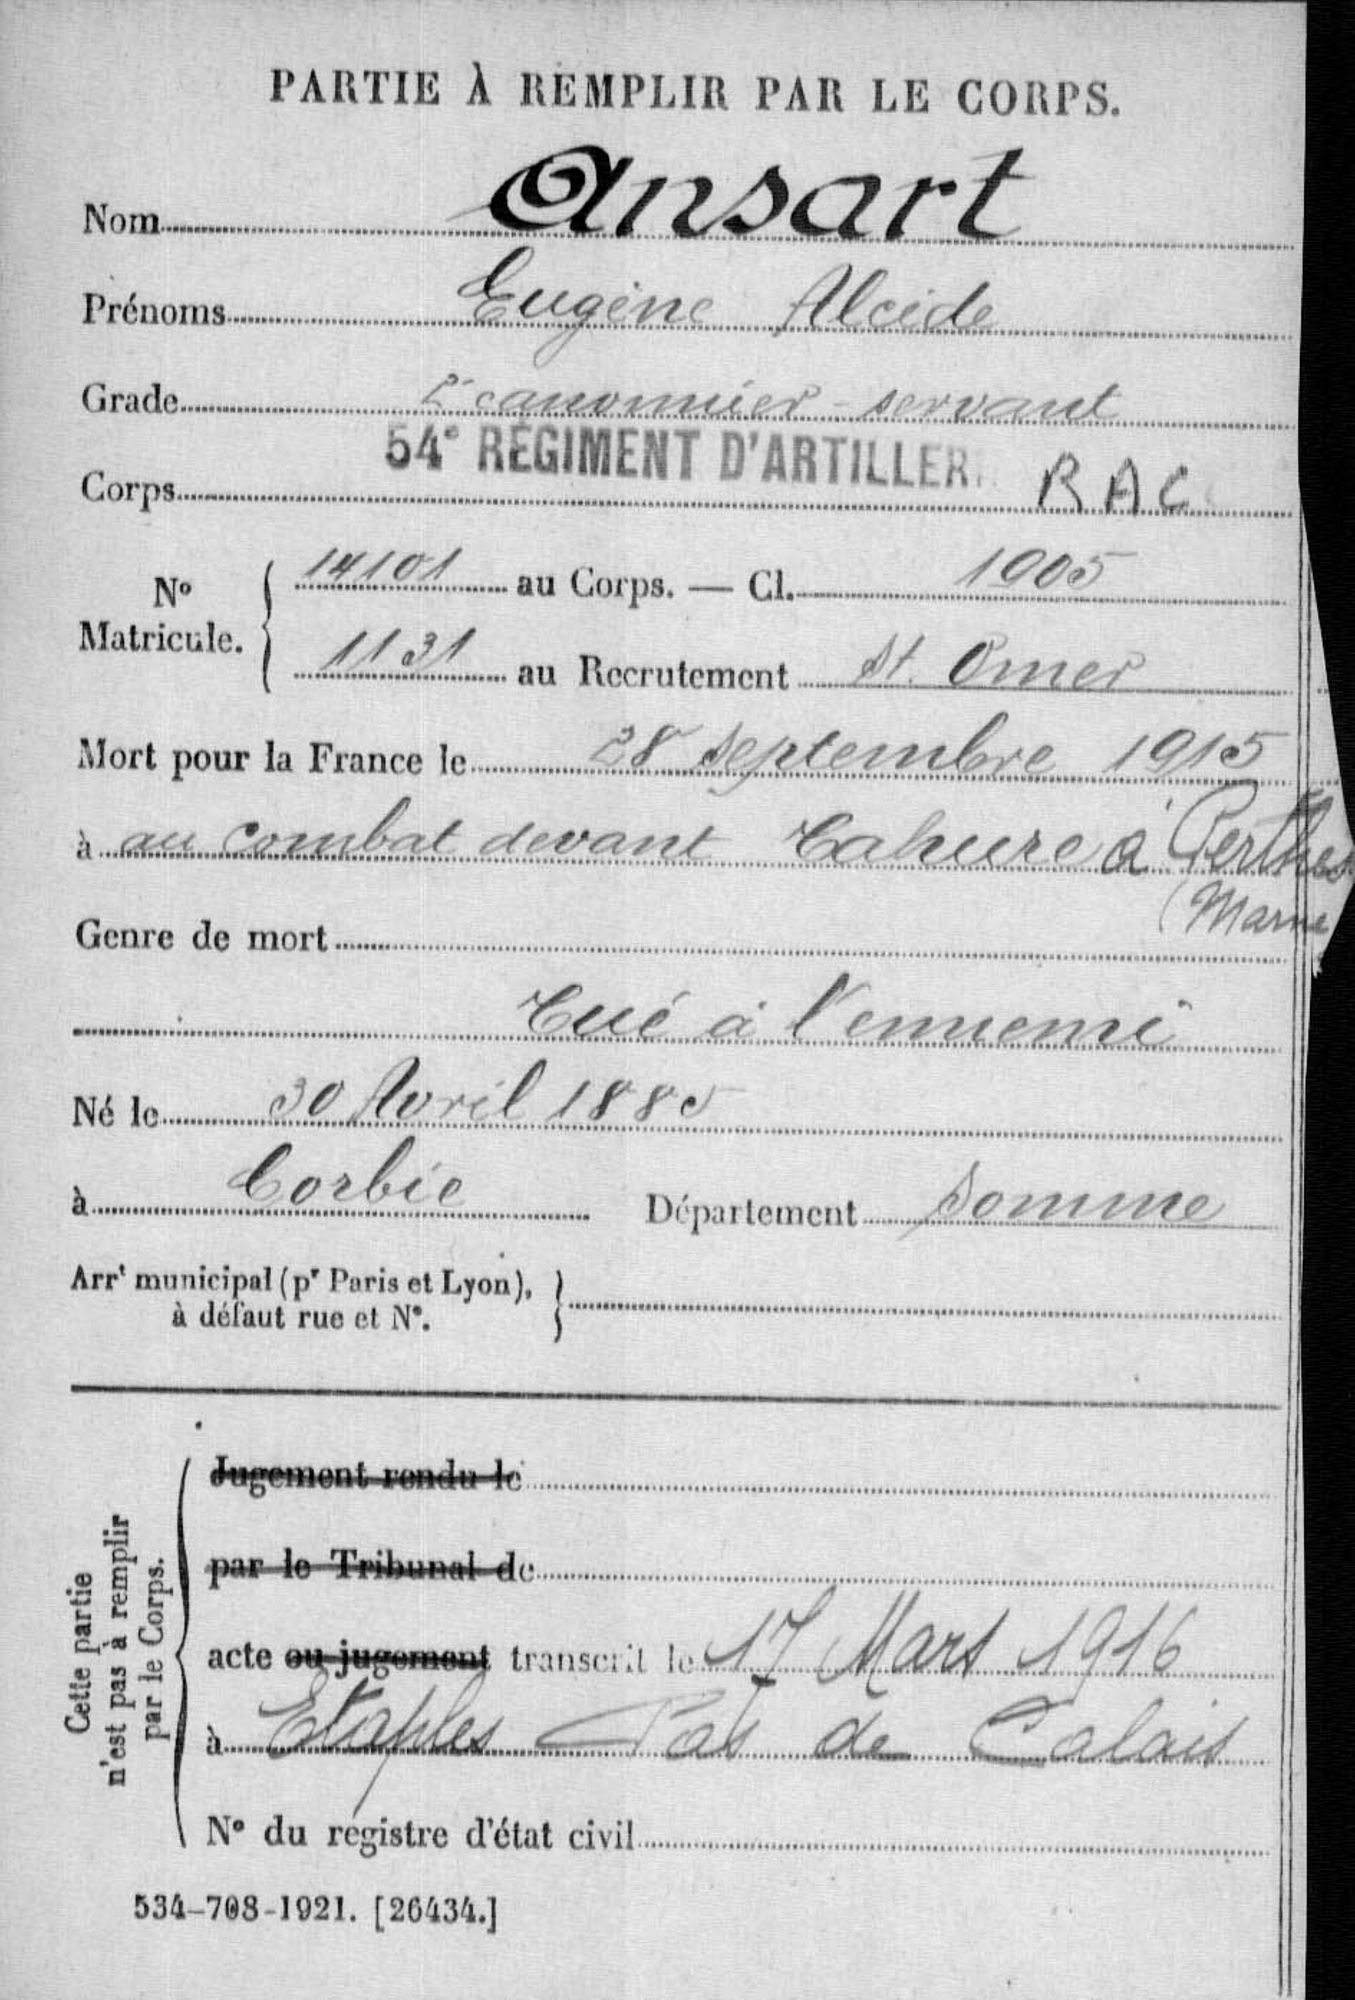 PARTIE À REMPLIR PAR LE CORPS.
Nom Ansart
Prénoms Eugène Alcide
Grade 2e canonnier-servant
54e RÉGIMENT D'ARTILLER
Corps R A C
No Matricule. 14101 au Corps. — Cl. 1905
1131 au Recrutement St. Omer
Mort pour la France le 28 septembre 1915
à au combat devant Tahure à Perthes
(Marne
Genre de mort
Tué à l'ennemi
Né le 30 Avril 1885
à Corbie Département Somme
Arrt municipal (pr Paris et Lyon),
à défaut rue et No.
Cette partie
n'est pas à remplir
par le Corps.
Jugement rendu le
par le Tribunal de
acte ou jugement transcrit le 17 Mars 1916
à Etaples Pas de Calais
No du registre d'état civil
534-708-1921. [26434.]